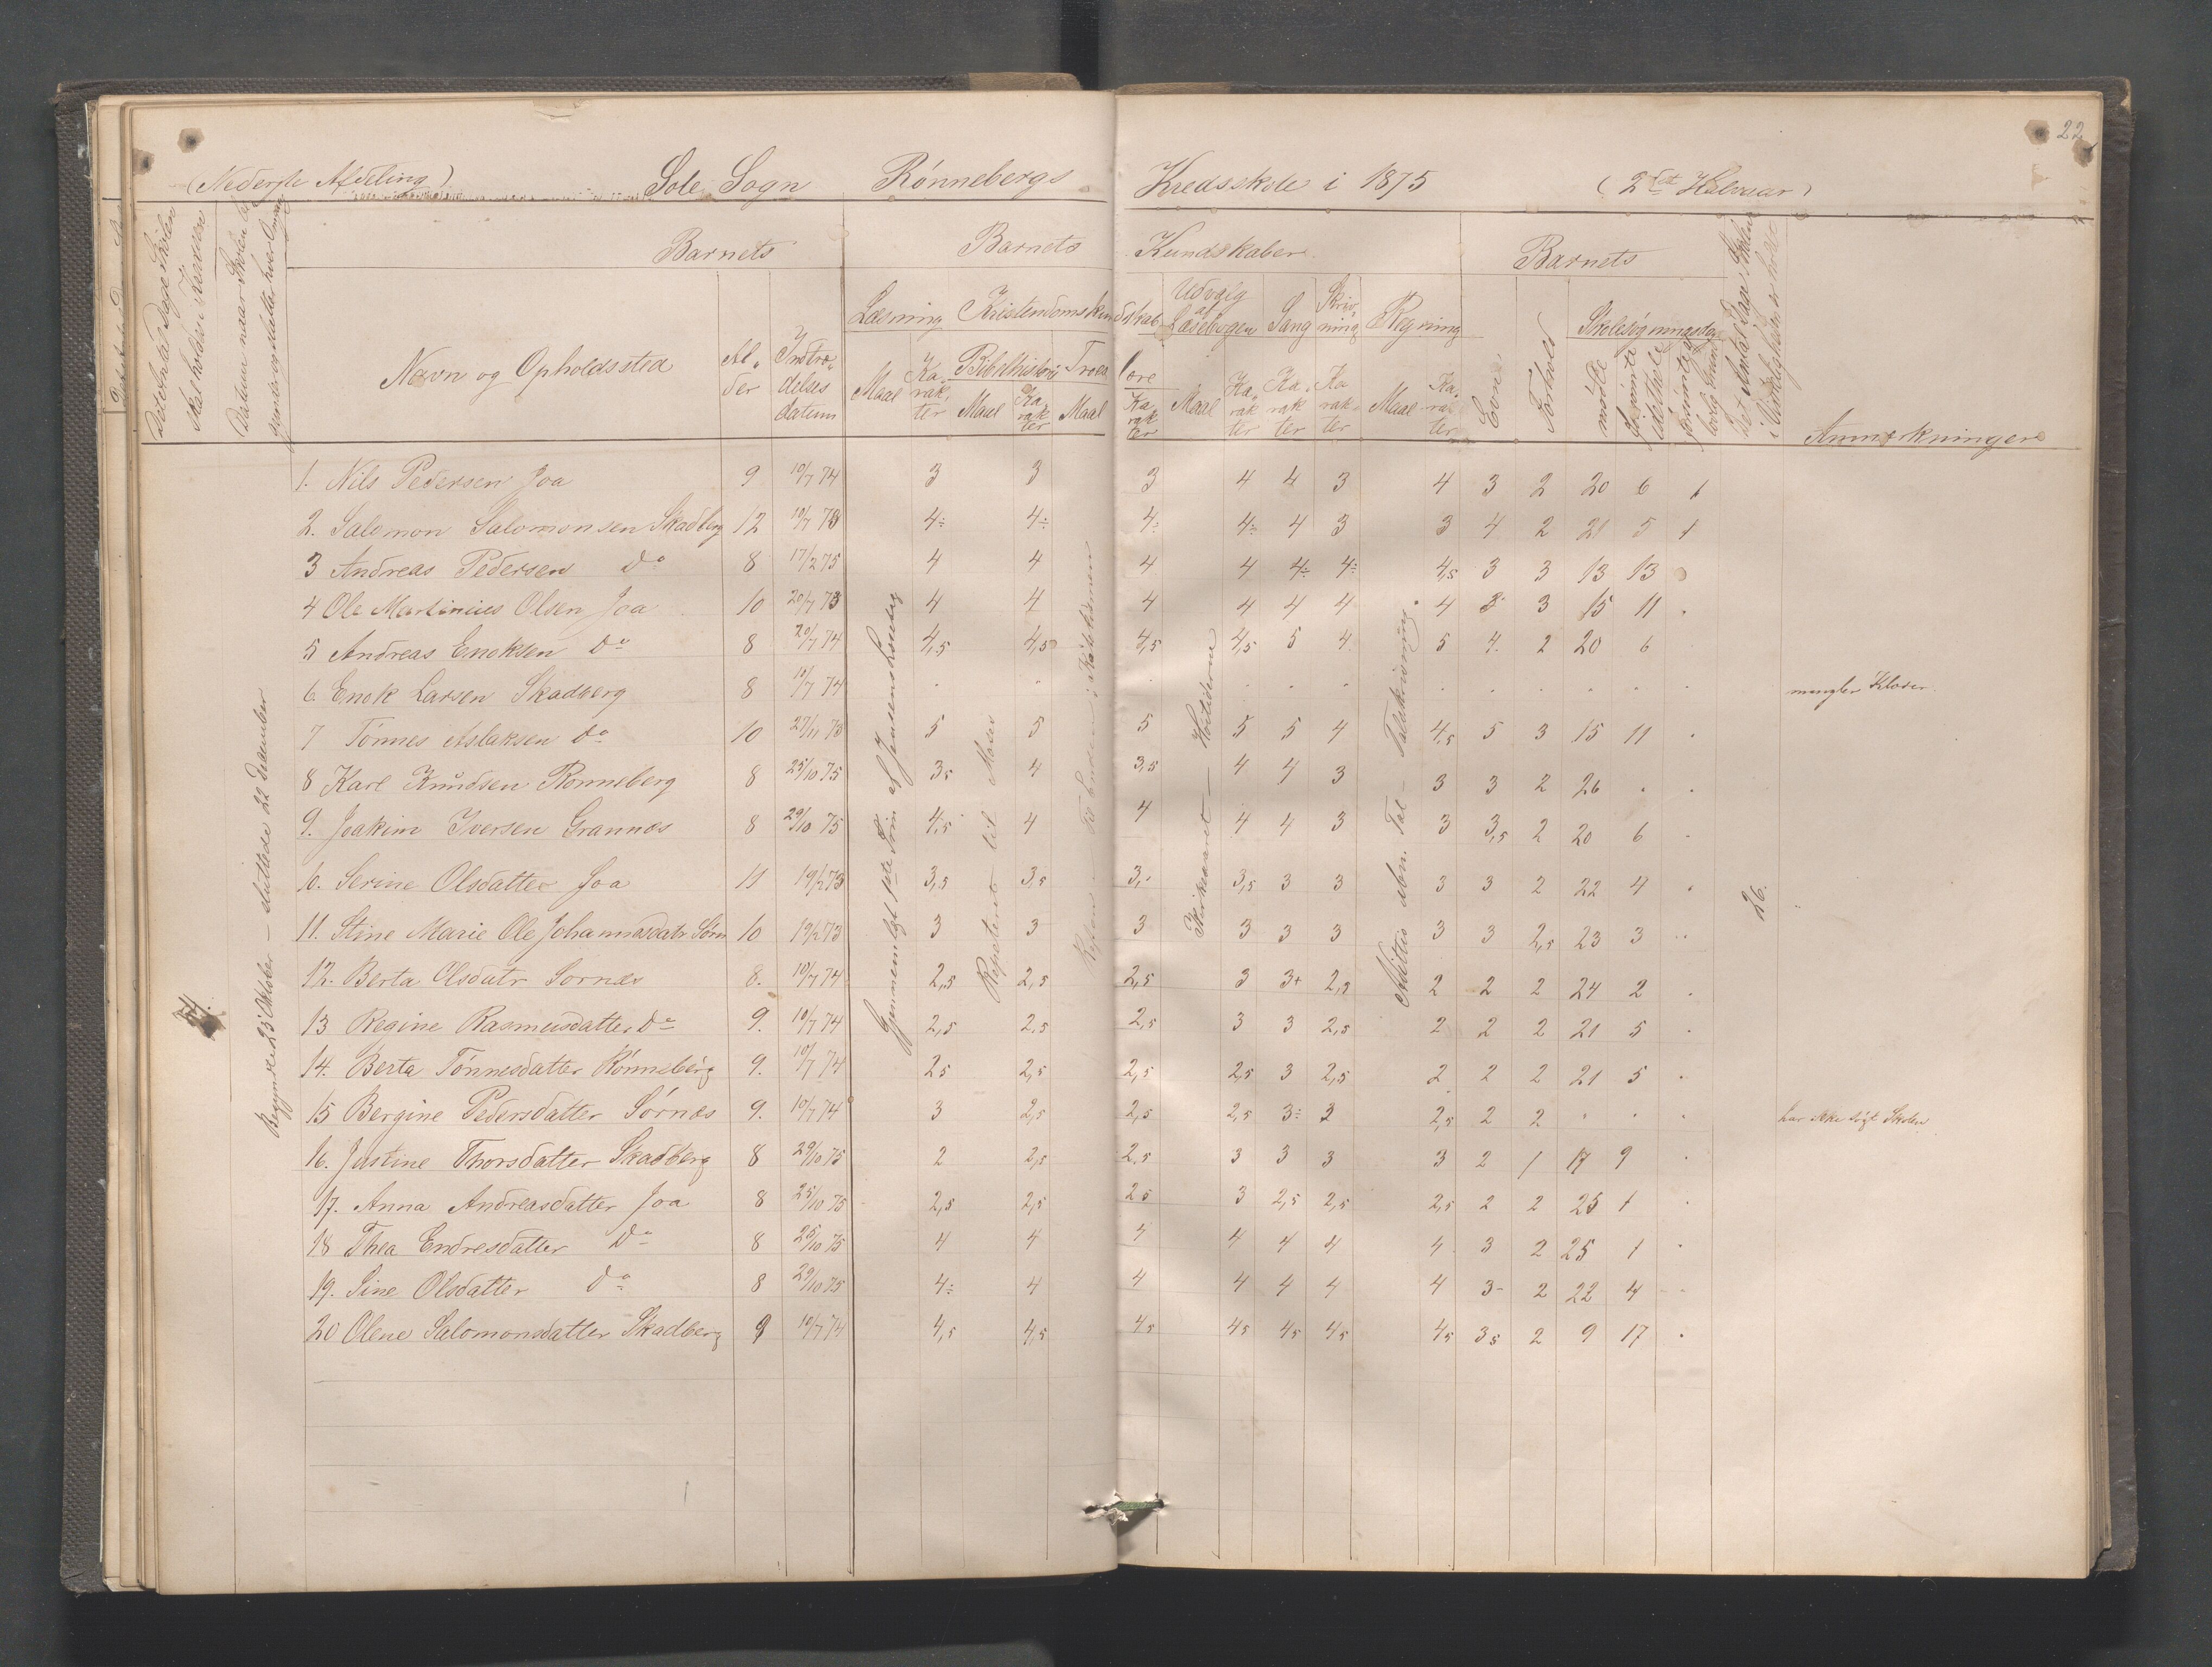 22
(Nederste Afdeling) Sole Sogn Rønnebergs Kredsskole i 1875 (2det Halvaar)
Barnets Barnets Kundskaber Barnets
Læsning Kristendomskundskab Udvalg af Læsebogen Sang Skrivning Regning Skolesøgningsdage
Navn og Opholdssted Alder Indtrædelsesdatum Maal Karakter Bibelhistorie Maal Karakter Troeslære Maal Karakter Maal Karakter Karakter Karakter Maal Karakter Evne Forhold mødte Anmærkninger
Begyndte 25 Oktober – sluttede 22 December
Repeteret til Moses
Kirkeaaret – Høitiderne
26.
1. Nils Pedersen Joa 9 10/7 74 3 3 3 4 4 3 4 3 2 20 6 1
2. Salomon Salomonsen Skadberg 12 10/7 73 4÷ 4÷ 4÷ 4÷ 4 3 3 4 2 21 5 1
3 Andreas Pedersen Do 8 17/2 75 4 4 4 4 4÷ 4÷ 4,5 3 3 13 13
4 Ole Martinius Olsen Joa 10 20/7 73 4 4 4 4 4 4 4 3 3 15 11 .
5 Andreas Enoksen Do 8 20/7 74 4,5 4,5 4,5 4,5 5 4 5 4 2 20 6
6 Enok Larsen Skadberg 8 10/7 74 . . . . . . . . . . . . mangler Klæder
7 Tønnes Aslaksen Do 10 27/11 73 5 5 5 5 5 4 4,5 5 3 15 11 .
8 Karl Knudsen Rønneberg 8 25/10 75 3,5 4 3,5 4 4 3 3 3 2 26 . .
9. Joakim Iversen Grannæs 8 29/10 75 4,5 4 4 4 4 3 3 3,5 2 20 6 .
10. Serine Olsdatter Joa 11 19/2 73 3,5 3,5 3,5 3 3 3 3 2 22 4 .
11. Stine Marie Ole Johannasdatr Sørn 10 19/2 73 3 3 3 3 3 3 3 3 2,5 23 3 ..
12. Berta Olsdatr Sørnæs 8. 10/7 74 2,5 2,5 2,5 3 3+ 2,5 2 2 2 24 2 .
13 Regine Rasmusdatter Do 9. 10/7 74 2,5 2,5 2,5 3 3 2,5 2 2 2 21 5 .
14. Berta Tønnesdatter Rønneberg 9. 10/7 74 2,5 2,5 2,5 2,5 3 2,5 2 2 2 21 5 .
15 Bergine Pedersdatter Sørnæs 9. 10/7 74 3 2,5 2,5 2,5 3÷ 3 2,5 2 2 . . . har ikke søgt Skolen
16. Justine Thorsdatter Skadberg 8 29/10 75 2 2,5 2,5 3 3 3 3 2 1 17 9 .
17. Anna Andreasdatter Joa 8 25/10 75 2,5 2,5 2,5 3 2,5 2,5 2,5 2 2 25 1 .
18 Thea Endresdatter Do 8 25/10 75 4 4 4 4 4 4 4 3 2 25 1 .
19. Sine Olsdatter Do 8 29/10 75 4÷ 4 4 4 4 4 4 3- 2 22 4
20 Olene Salomonsdatter Skadberg 9 10/7 74 4,5 4,5 4,5 4,5 4,5 4,5 4,5 3,5 2 9 17 .